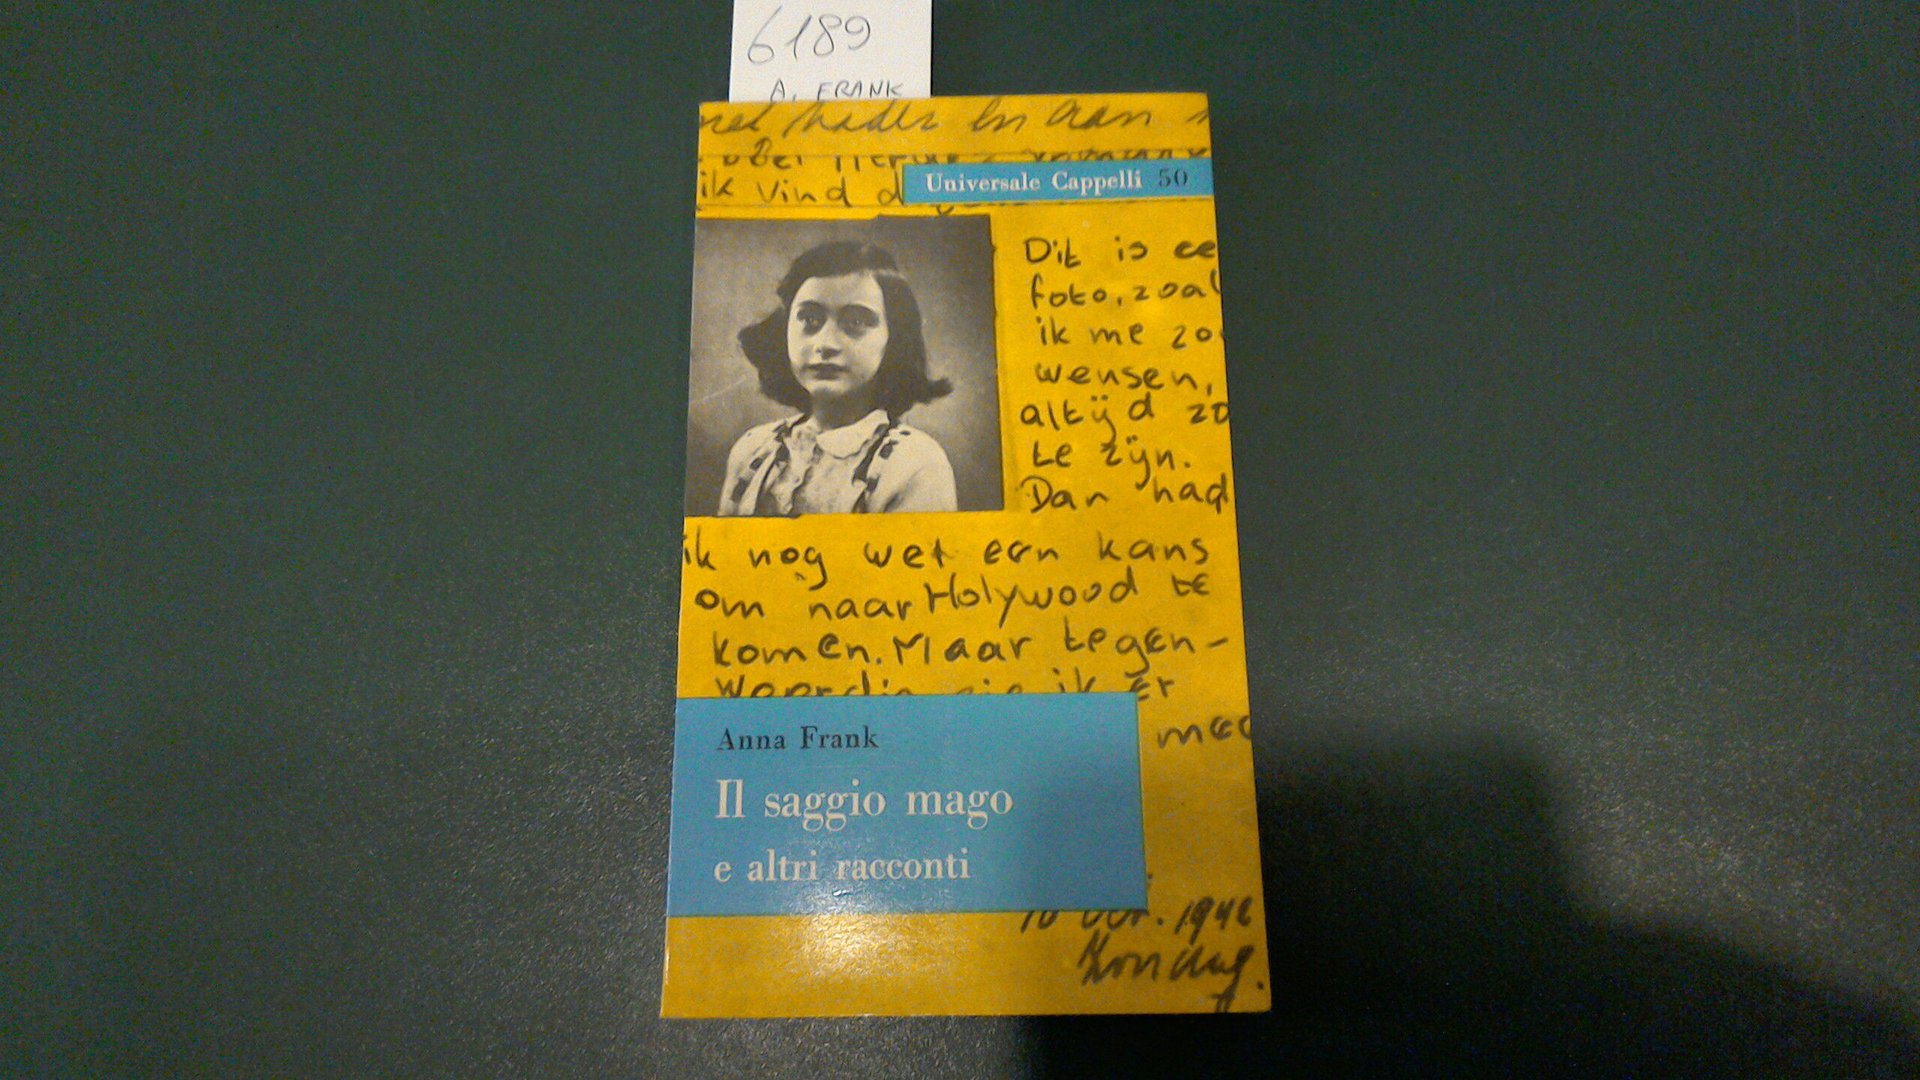 6189
A. FRANK
en aan
ik vind d
Universale Cappelli 50
Dit is ee
foto, zoal
ik me zo
wensen,
altijd zo
te zijn.
Dan had
ik nog wel een kans
om naar Holywood te
komen. Maar tegen-
ik er
mee
Anna Frank
Il saggio mago
e altri racconti
1942
Zondag.